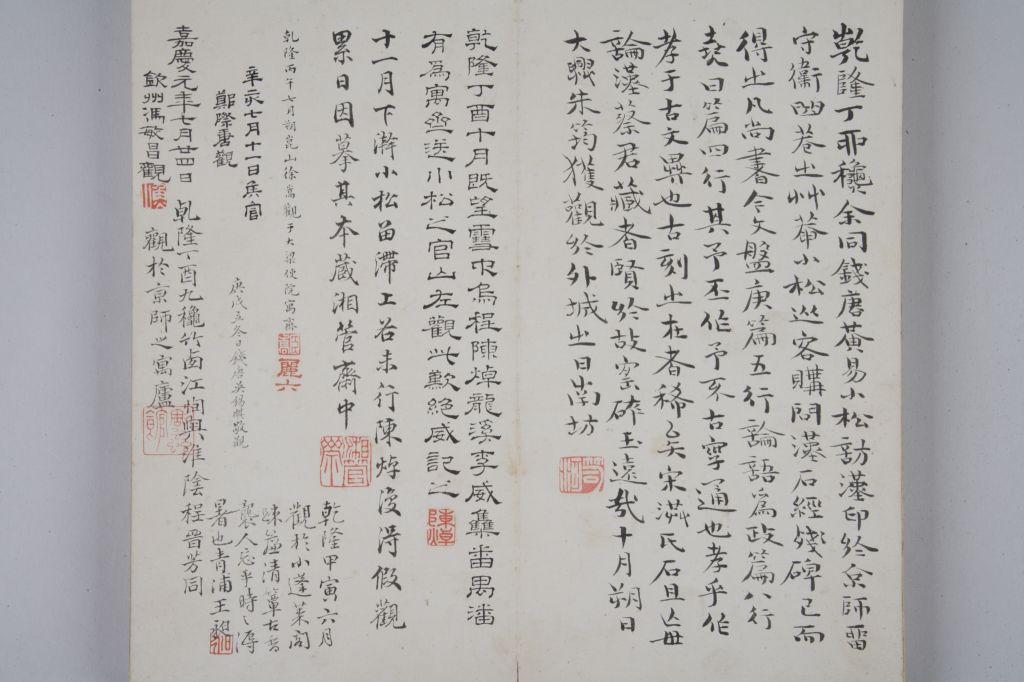 乾隆丁酉穐余同錢唐黃易小松訪漢印於京師畱
守衞𨞻巷之艸菴小松從客購問漢石經殘碑已而
得之凡尚書命文盤庚篇五行論語爲政篇八行
堯曰篇四行其予丕作予不古寧通也孝乎作
孝于古文異也古刻之在者稀矣宋洪氏石且亡毋
論漢蔡君藏者賢於故家碎玉遠哉十月朔日
大興朱筠獲觀於外城之日南坊
乾隆丁酉十月既望雪中烏程陳焯龍溪李威集番禺潘
有爲寓齋送小松之官山左觀此歎絕威記之
陳焯
十一月下澣小松畱滯上谷未行陳焯復淂假觀
累日因摹其本蔵湘管齋中
湘管
乾隆丙午七月朔崑山徐嵩觀于大梁使院寓齋
麗六
辛亥七月十一日侯官
鄭際唐觀
庚戌立冬日錢唐吳錫麒敬觀
乾隆甲寅六月
觀於小蓬萊閣
疎簾清簟古香
襲人忘乎時之溽
暑也青浦王昶
嘉慶元年七月廿四日
欽州馮敏昌觀
乹隆丁酉九穐竹鹵江恂與淮陰程晉芳同
觀於京師之寓廬